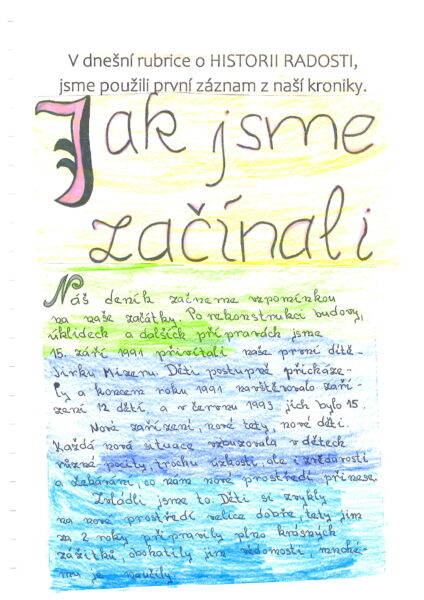 V dnešní rubrice o HISTORII RADOSTI,
jsme použili první záznam z naší kroniky.
Jak jsme
začínali
Náš deník začneme vzpomínkou
na naše začátky. Po rekonstrukci budovy,
úklidech a dalších přípravách jsme
15. září 1991 přivítali naše první dítě-
Jirku Mizeru. Děti postupně přicháze-
ly a koncem roku 1991 navštěvovalo zaří-
zení 12 dětí a v červnu 1993 jich bylo 15.
Nové zařízení, nové tety, nové děti.
Každá nová situace vzbuzovala v dětech
různé pocity, trochu úzkosti, ale i zvědavosti
a čekání, co nám nové prostředí přinese.
Zvládli jsme to. Děti si zvykly
na nové prostředí velice dobře, tety jim
za 2 roky připravily plno krásných
zážitků, obohatily jim vědomosti, mnohé-
mu je naučily.